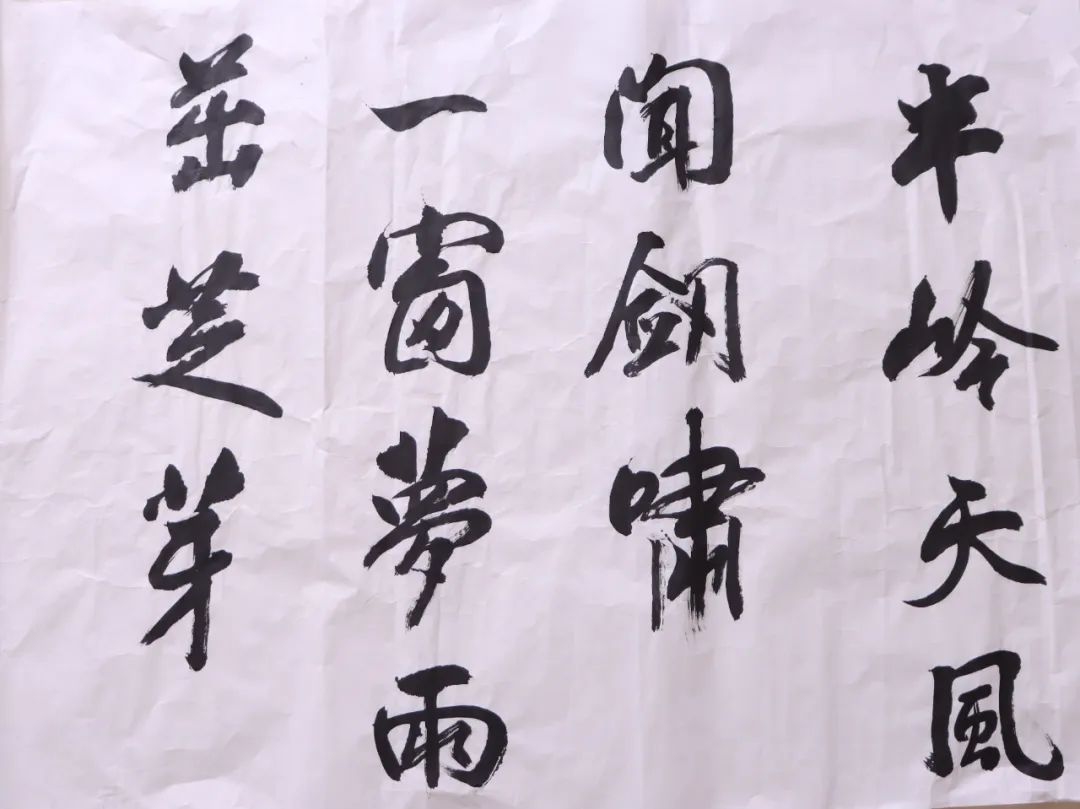 半岭天風
聞劍嘯
一窗夢雨
茁芝芽